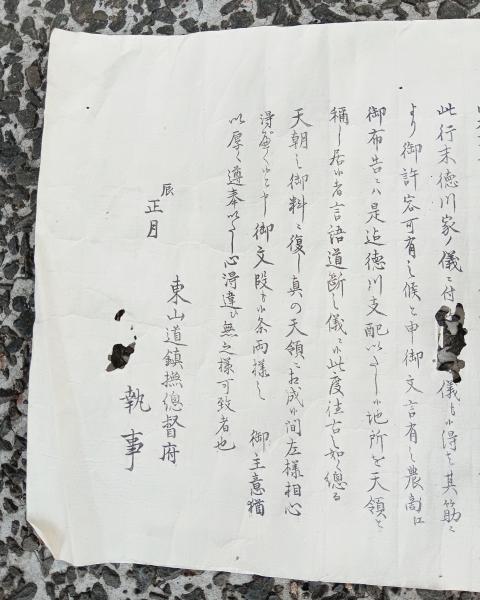 此行末徳川家ノ儀ニ付 儀も小得ミ其筋ニ
より御許容可有之候と申御文言有之農商江
御布告ニハ是迄徳川支配いたし小地所を天領と
称し居小者言語道断之儀ニ小此度往古之如く總る
天朝之御料ニ復し真の天領ニお成小間左様相心
得 御文段も小条両様之 御主意猶
以厚く遵奉いたし心得違ひ無之様可致者也
辰
正月
東山道鎮撫總督府
執事